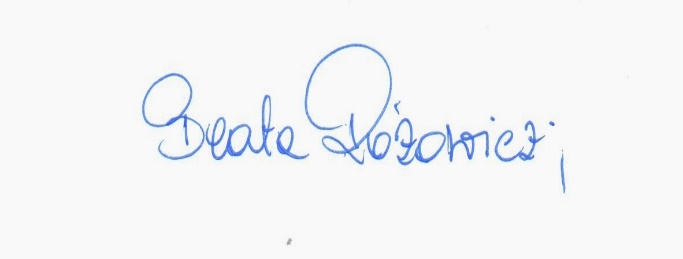 Beata Różowicz